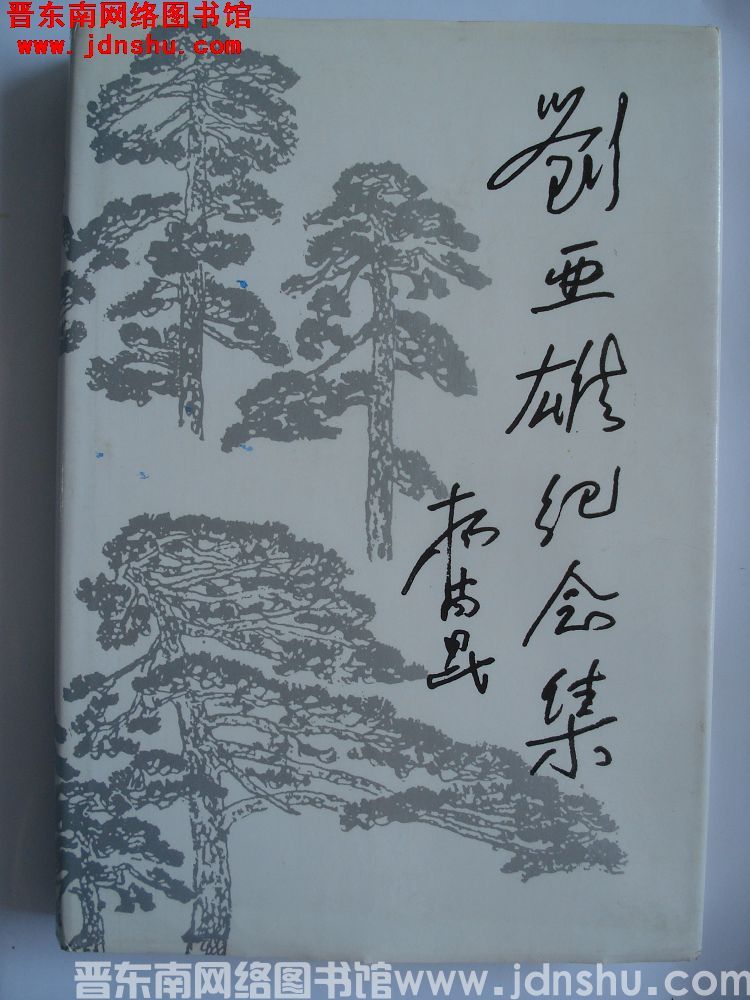 晋东南网络图书馆
www.jdnshu.com
劉亜雄纪念集
楊尚昆
晋东南网络图书馆www.jdnshu.com